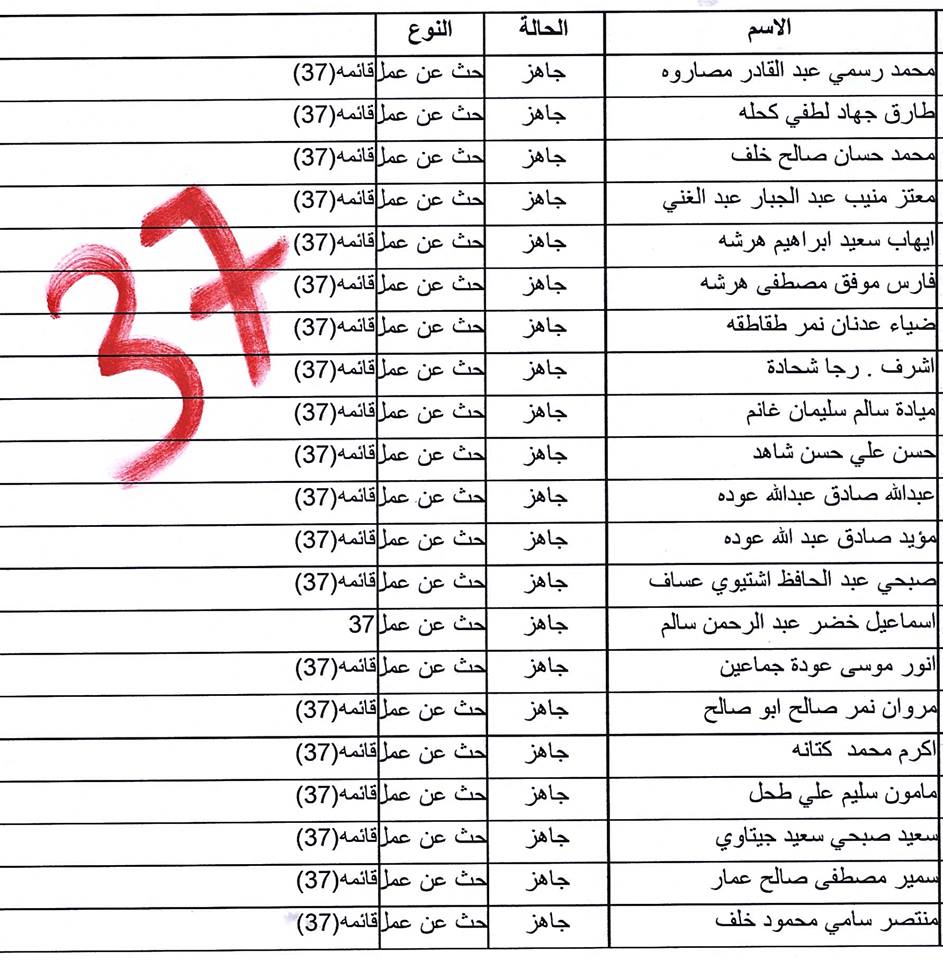 الاسم الحالة النوع
محمد رسمي عبد القادر مصاروه جاهز حث عن عمل قائمه(37)
طارق جهاد لطفي كحله جاهز حث عن عمل قائمه(37)
محمد حسان صالح خلف جاهز حث عن عمل قائمه(37)
معتز منيب عبد الجبار عبد الغني جاهز حث عن عمل قائمه(37)
ايهاب سعيد ابراهيم هرشه جاهز حث عن عمل قائمه(37)
فارس موفق مصطفى هرشه جاهز حث عن عمل قائمه(37)
ضياء عدنان نمر طقاطقه جاهز حث عن عمل قائمه(37)
اشرف . رجا شحادة جاهز حث عن عمل قائمه(37)
ميادة سالم سليمان غانم جاهز حث عن عمل قائمه(37)
حسن علي حسن شاهد جاهز حث عن عمل قائمه(37)
عبدالله صادق عبدالله عوده جاهز حث عن عمل قائمه(37)
مؤيد صادق عبد الله عوده جاهز حث عن عمل قائمه(37)
صبحي عبد الحافظ اشتيوي عساف جاهز حث عن عمل قائمه(37)
اسماعيل خضر عبد الرحمن سالم جاهز حث عن عمل 37
انور موسى عودة جماعين جاهز حث عن عمل قائمه(37)
مروان نمر صالح ابو صالح جاهز حث عن عمل قائمه(37)
اكرم محمد كتانه جاهز حث عن عمل قائمه(37)
مامون سليم علي طحل جاهز حث عن عمل قائمه(37)
سعيد صبحي سعيد جيتاوي جاهز حث عن عمل قائمه(37)
سمير مصطفى صالح عمار جاهز حث عن عمل قائمه(37)
منتصر سامي محمود خلف جاهز حث عن عمل قائمه(37)
37